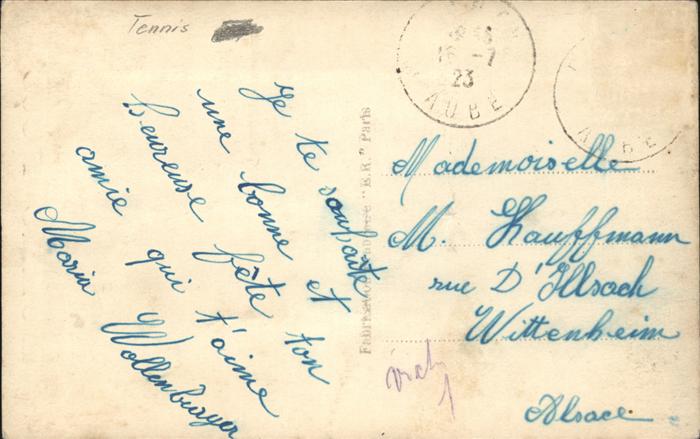 Tennis
Je te souhaite
une bonne et
heureuse fête ton
amie qui t'aime
Maria Wollenburger
Fabrication Française "E.R." Paris
16 -7
23
AUBE
AUBE
Mademoiselle
M. Kauffmann
rue D'Illsach
Wittenheim
Alsace